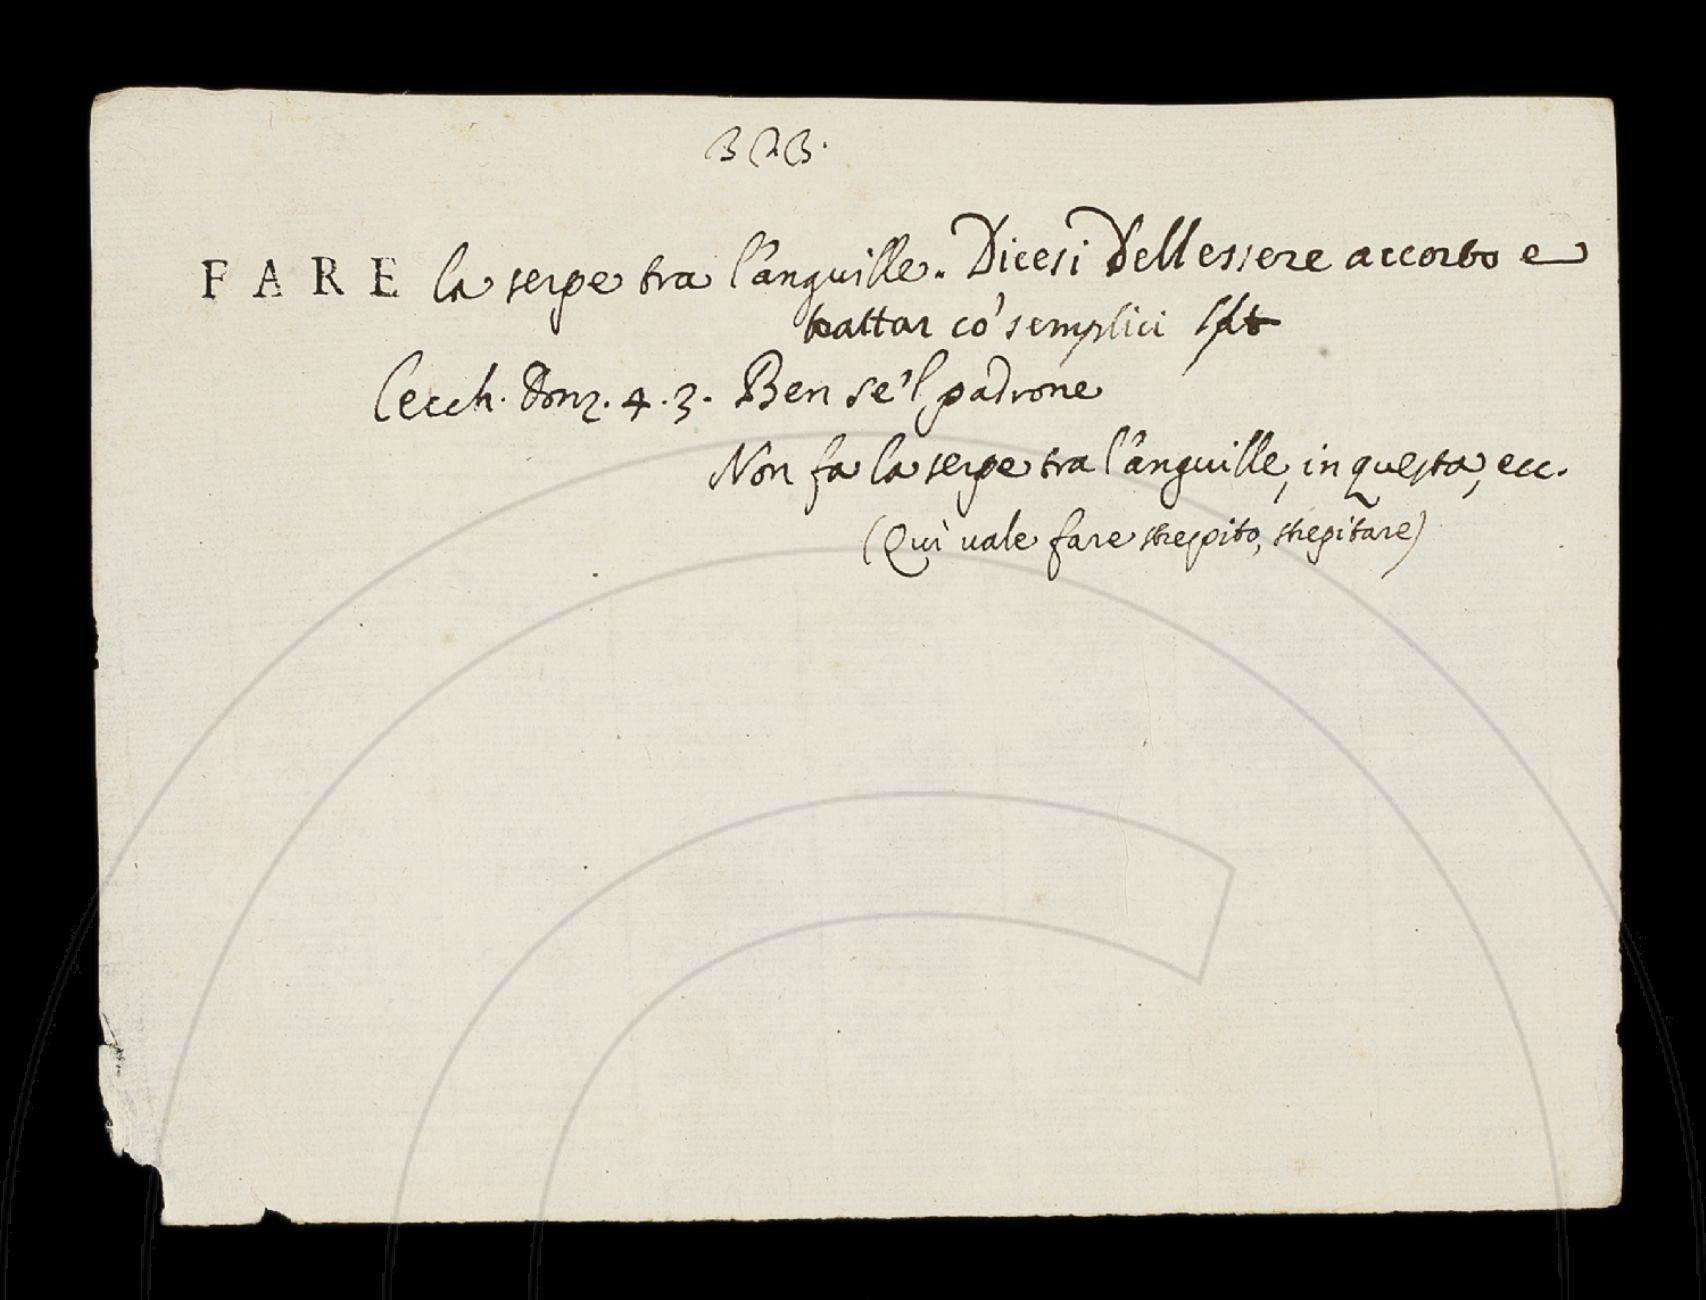 323.
FARE la serpe tra l'anguille. Dicesi dell essere accorto e
trattar co' semplici
Cecch. Donz. 4. 3. Ben se'l padrone
Non fa la serpe tra l'anguille, in questa, ecc.
(Qui vale fare strepito, strepitare)